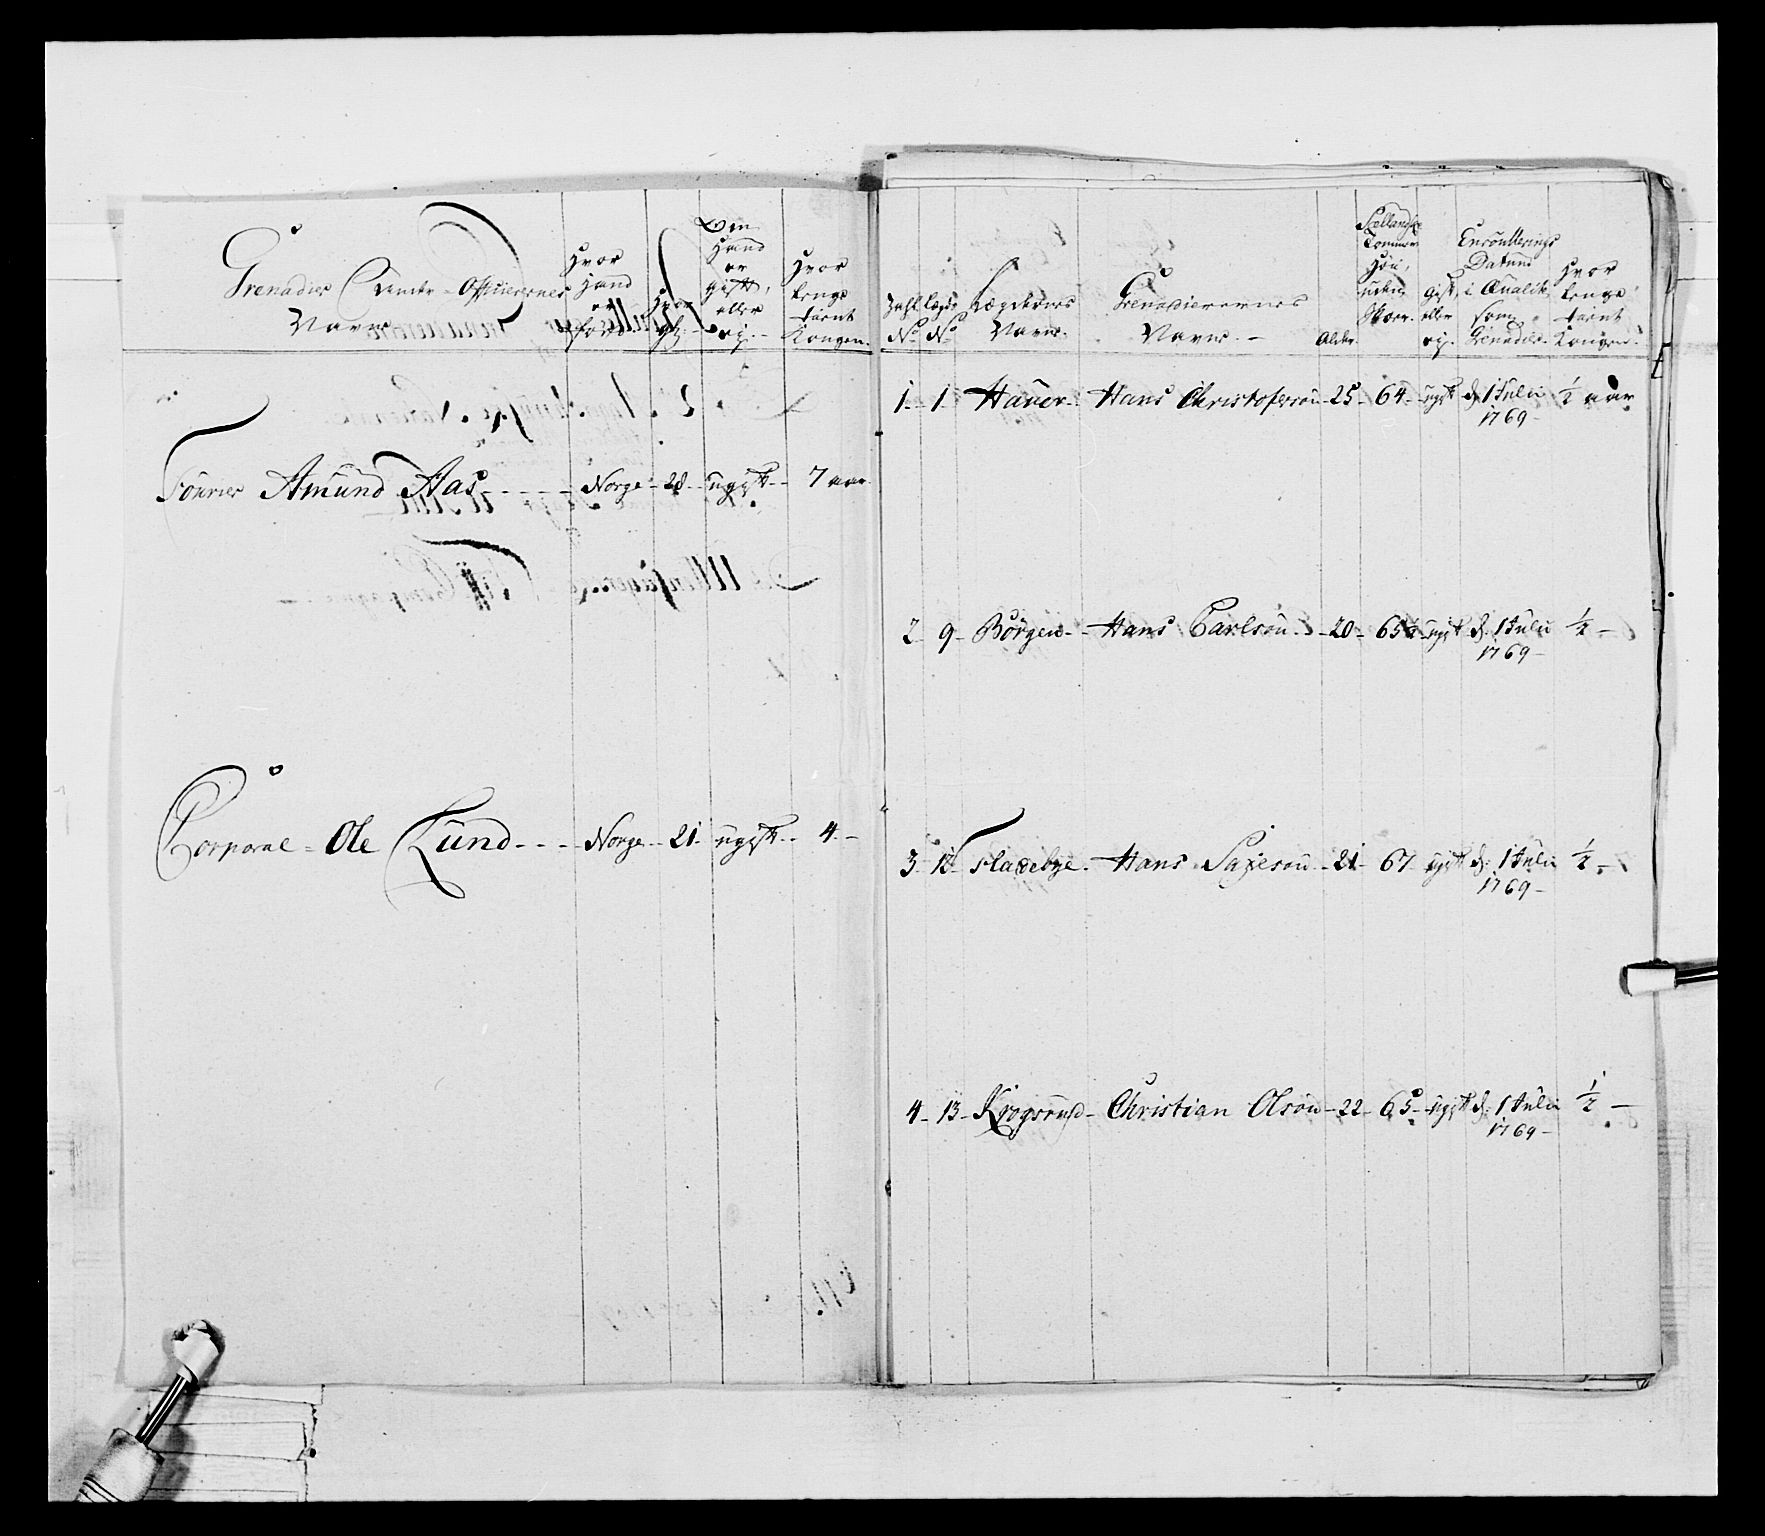 Grenadier Under-Officerernes
Navne
Hvor
hand
er
fød
Hvor
gl:
Om
Hand
er
gift,
eller
ej.
Hvor
lenge
tient
Kongen.
Fourier Amund Aas - - - - Norge - 28 - ugift - 7 aar
Corporal - Ole Lund - - - Norge - 21 - ugift - 4 -
Zahl
No
Legds
No
Lægdernes
Navne.
Grenadierernes
Navne. -
Alder.
Siellandske
Tommer
Høj,
uden
Skoer.
Gift
eller
ej.
Enroullerings
Datum
i Qualité
som
Grenadier.
Hvor
lenge
tient
Kongen.
1 - 1 - Hauer - Hans Christofersøn - 25 - 64 - ugift d. 1 Julii ½ aar
1769 -
2 - 9 - Børgen - Hans Carlsøn - 20 - 65½ - ugift d. 1 Julii ½ -
1769 -
3 - 12 - Fladebye - Hans - 21 - 67 - ugift d. 1 Julii ½ -
1769 -
4 - 13 - Krogsrud - Christian Olsøn - 22 - 65 - ugift d. 1 Julii ½ -
1769 -